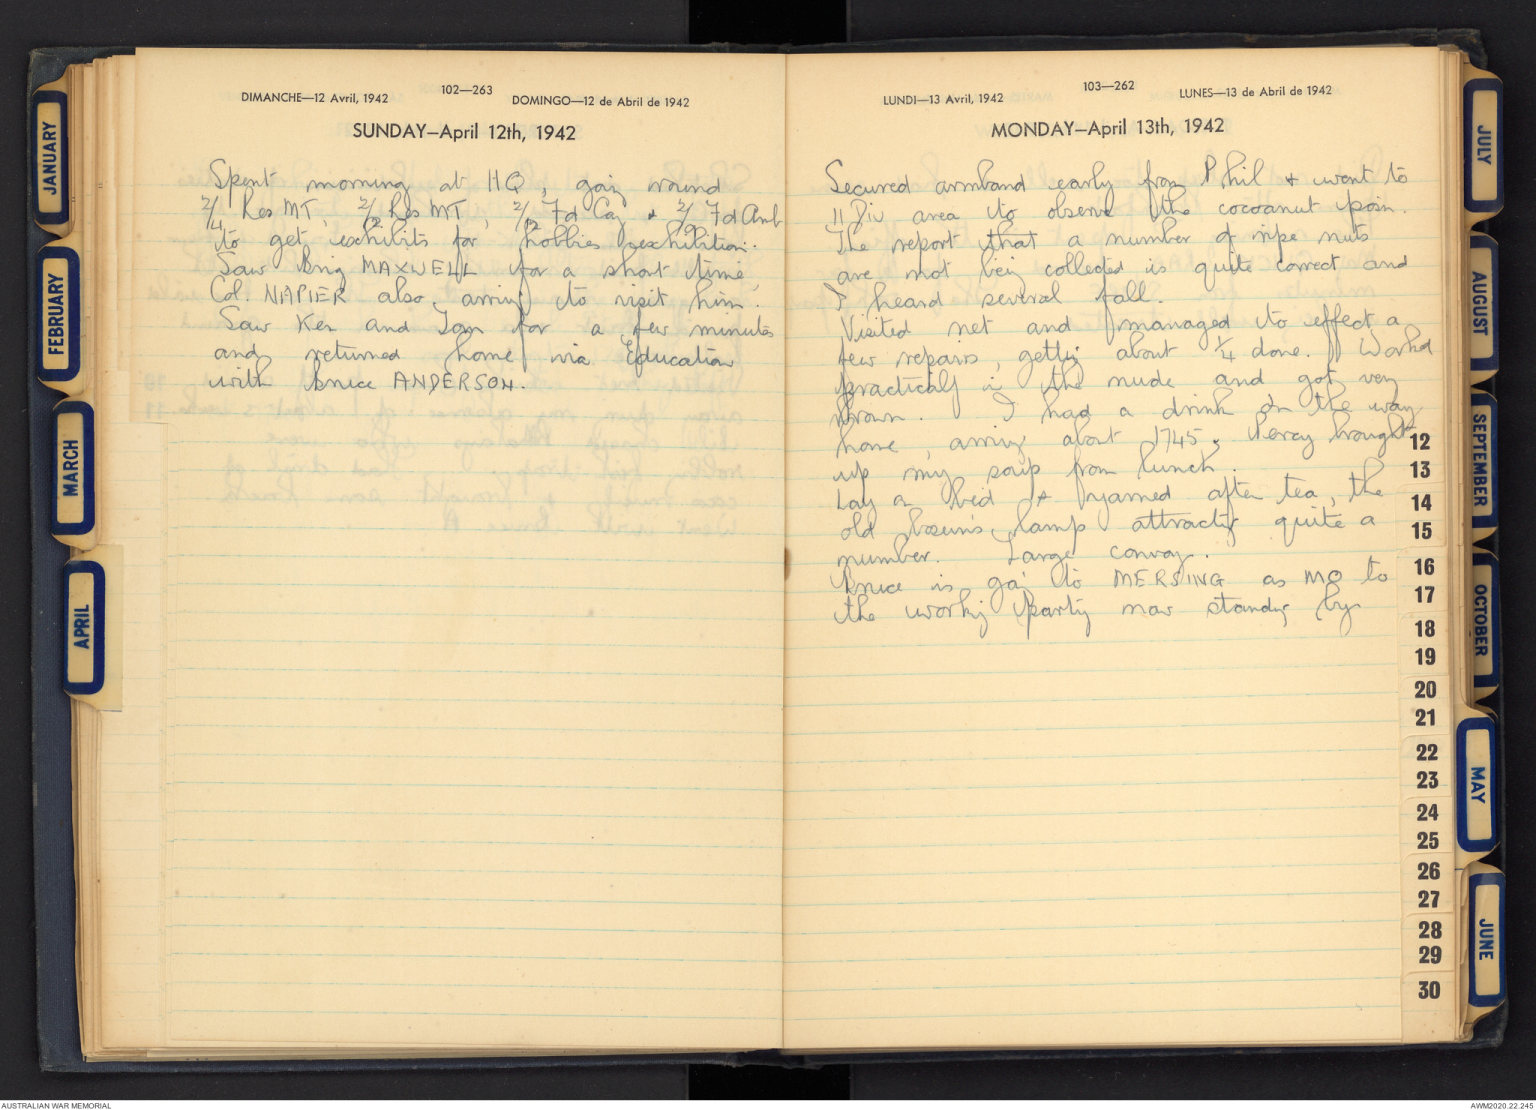 DIMANCHE—12 Avril, 1942
102—263
DOMINGO—12 de Abril de 1942
SUNDAY—April 12th, 1942
Spent morning at HQ, going round
2/14 Res MT, 2/12 Res MT, 2/12 Fd Coy & 2/9 Fd Amb
to get exhibits for hobbies exhibition.
Saw Brig MAXWELL for a short time,
Col. NAPIER also, arriving to visit him.
Saw Ken and Ian for a few minutes
and returned home via Education
with Bruce ANDERSON.
LUNDI—13 Avril, 1942
103—262
LUNES—13 de Abril de 1942
MONDAY—April 13th, 1942
Secured armband early from Phil & went to
11 Div area to observe the cocoanut posn.
The report that a number of ripe nuts
are not being collected is quite correct and
I heard several fall.
Visited net and managed to effect a
few repairs, getting about 1/4 done. Worked
practically in the nude and got very
brown. I had a drink on the way
home, arriving about 1745, Percy brought
up my soup from lunch.
Lay on bed & yarned after tea, the
old bosun's lamp attracting quite a
number. Large convoy.
Bruce is going to MERSING as MO to
the working party now standing by
JANUARY
FEBRUARY
MARCH
APRIL
JULY
AUGUST
SEPTEMBER
OCTOBER
MAY
JUNE
12
13
14
15
16
17
18
19
20
21
22
23
24
25
26
27
28
29
30
AUSTRALIAN WAR MEMORIAL
AWM2020.22.245